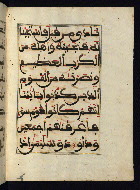 نادى من قبل فاستجبنا
له فنجينه واهله من
الكرب العظيم
ونصرنه من القوم
الذين كذبوا بايتنا
انهم كانوا قوم سوء
فاغرقنهم اجمعين
وداود وسليمن اذ